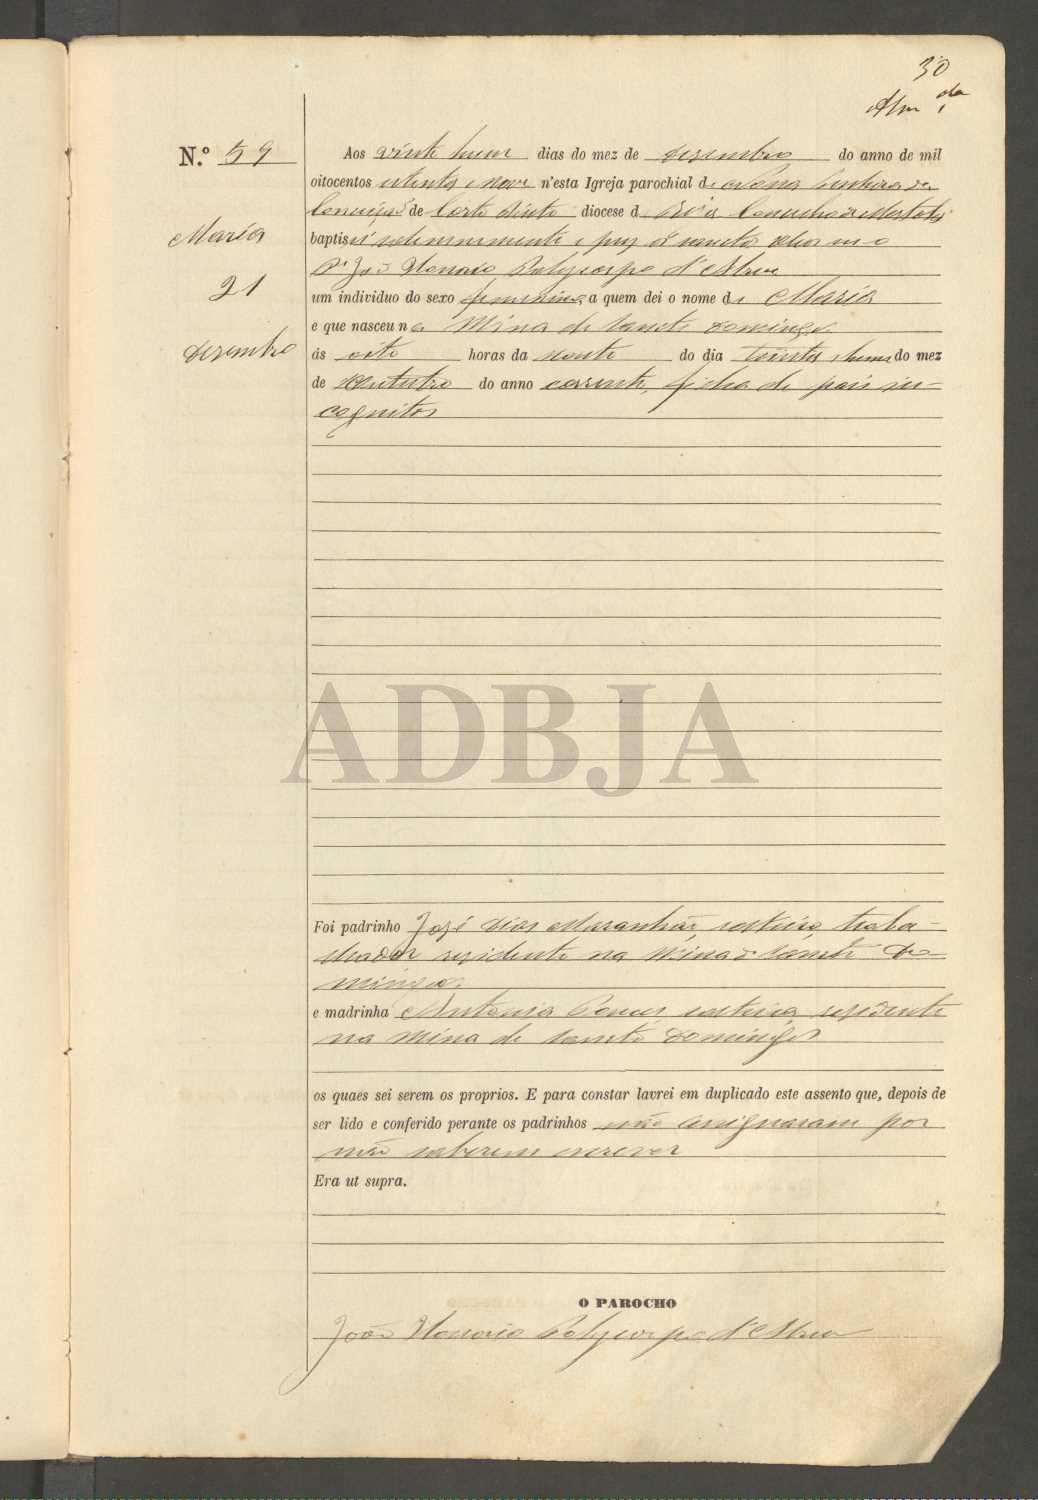 30
Alm.da
N.º 59
Maria
21
Dezembro
Aos vinte hum dias do mez de Dezembro do anno de mil
oitocentos oitenta e nove n'esta Igreja parochial de Nossa Senhora da
Conceição de Corte Pinto diocese de Beja Concelho de Mertola
baptisei solemnemente e puz os sanctos oleos eu o
P.e João Honorio Polycarpo d'Abreu
um individuo do sexo femenino, a quem dei o nome de Maria
e que nasceu na Mina de Sancto Domingos
ás oito horas da noute do dia trinta e hum do mez
de Outubro do anno corrente, filha de pais in-
cognitos
ADBJA
Foi padrinho José Dias Maranhão, solteiro, traba-
lhador residente na Mina de Sancto Do-
mingos
e madrinha Antonia solteira residente
na Mina de Sancto Domingos
os quaes sei serem os proprios. E para constar lavrei em duplicado este assento que, depois de
ser lido e conferido perante os padrinhos não assignaram por
não saberem escrever
Era ut supra.
O PAROCHO
João Honorio Polycarpo d'Abreu